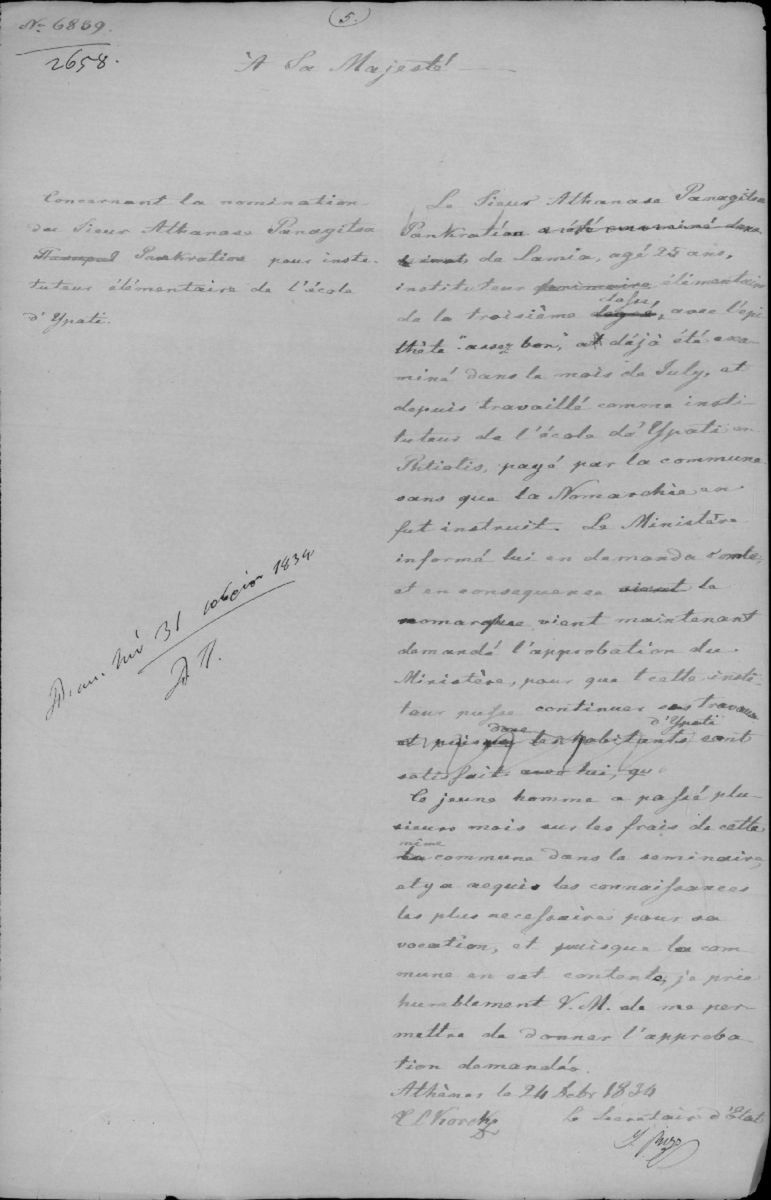 No 6869.
2658.
5.
À Sa Majesté
Concernant la nomination
du Sieur Athanase Panagitsa
Pankration pour insti-
tuteur élémentaire de l'école
d'Ypati.
31 1834
Le Sieur Athanase Panagitsa
Pankration a été examiné dans
de Lamia, agé 25 ans,
instituteur primaire élémentaire
de la troisième classe, avec l'epi
thète "assez bon", a déjà été exa
miné dans le mois de July, et
depuis travaillé comme insti-
tuteur de l'école d'Ypati en
Phtiotis, payé par la commune
sans que la Nomarchie en
fut instruit. Le Ministère
informé lui en demanda conte,
et en consequence vient le
nomarque vient maintenant
demandé l'approbation du
Ministère, pour que cette insti-
teur puisse continuer ses travaux
et puisque donc les habitants d'Ypati sont
satisfait avec lui, qu
Ce jeune homme a passé plu-
sieurs mois sur les frais de cette
même commune dans le seminaire,
et y a acquis les connaissances
les plus necessaires pour sa
vocation, et puisque la com
mune en est contente, je prie
humblement V. M. de me per-
mettre de donner l'approba
tion demandée.
Athènes le 24 1834
Le Secretair d'Etat